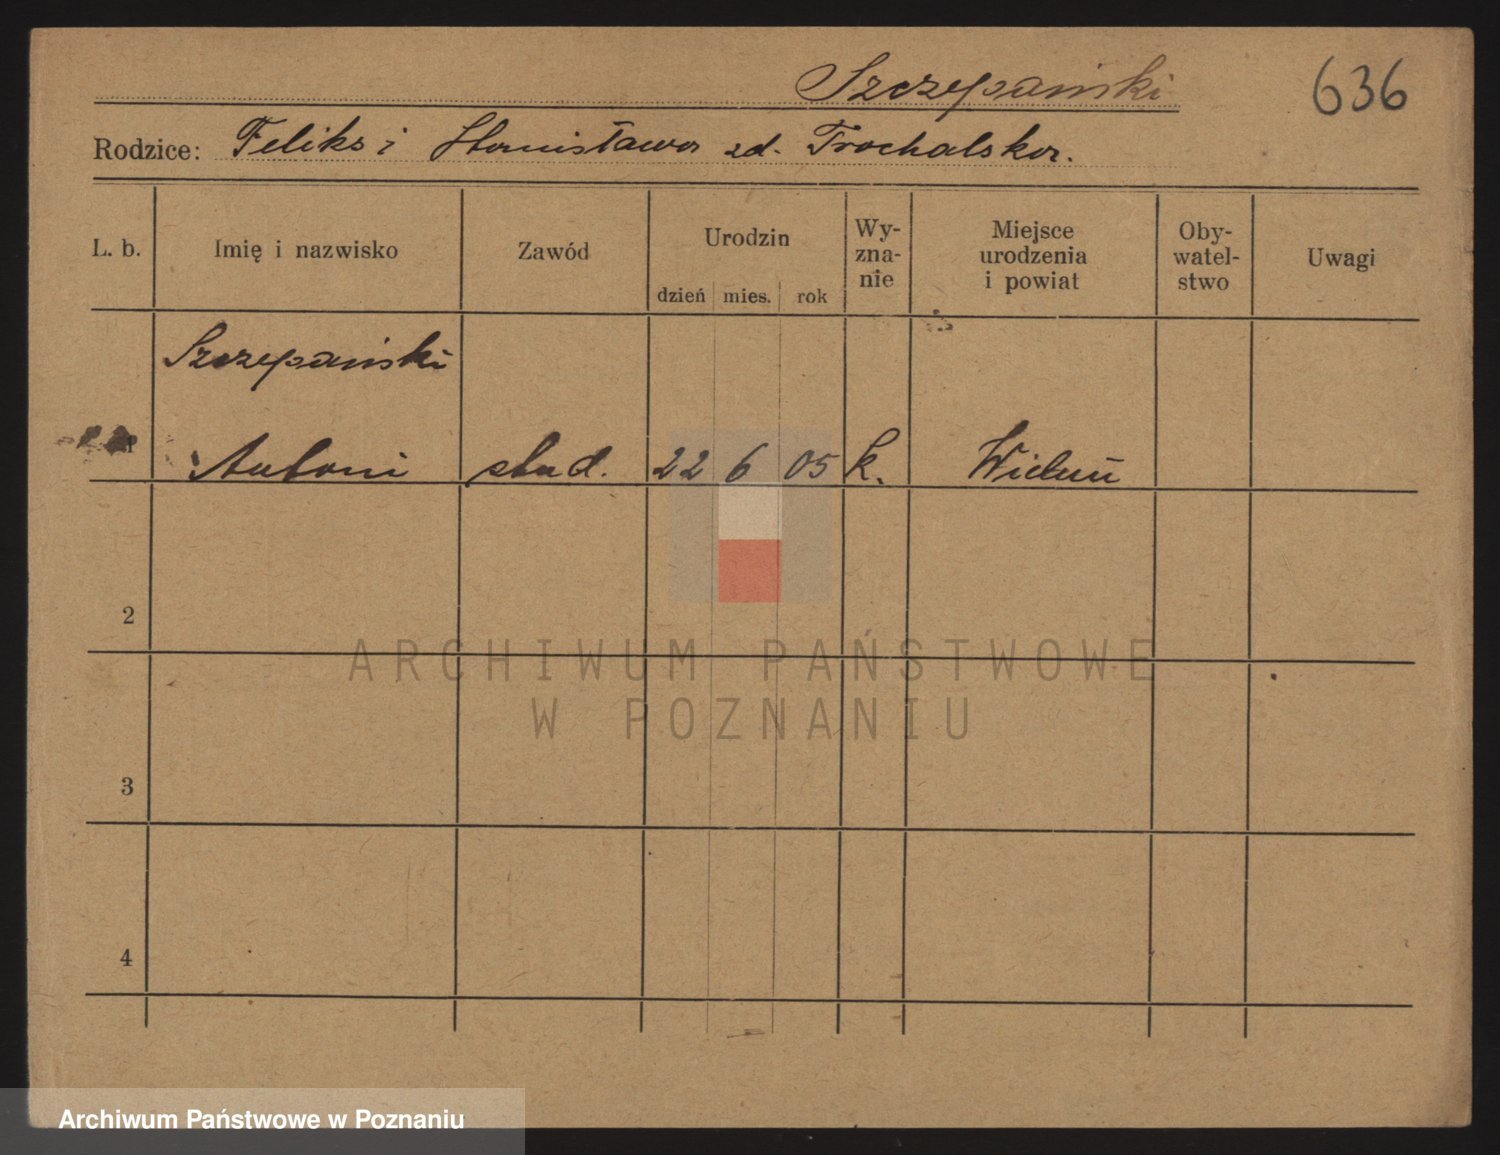 Szczepański
636
Rodzice: Feliks i Stanisława zd. Trochalska.
L. b. Imię i nazwisko Zawód Urodzin Wy-zna-nie Miejsce urodzenia i powiat Oby-watel-stwo Uwagi
dzień mies. rok
Szczepański
1 Antoni stud. 22 6 05 k. Wieluń
2
ARCHIWUM PAŃSTWOWE
W POZNANIU
3
4
Archiwum Państwowe w Poznaniu